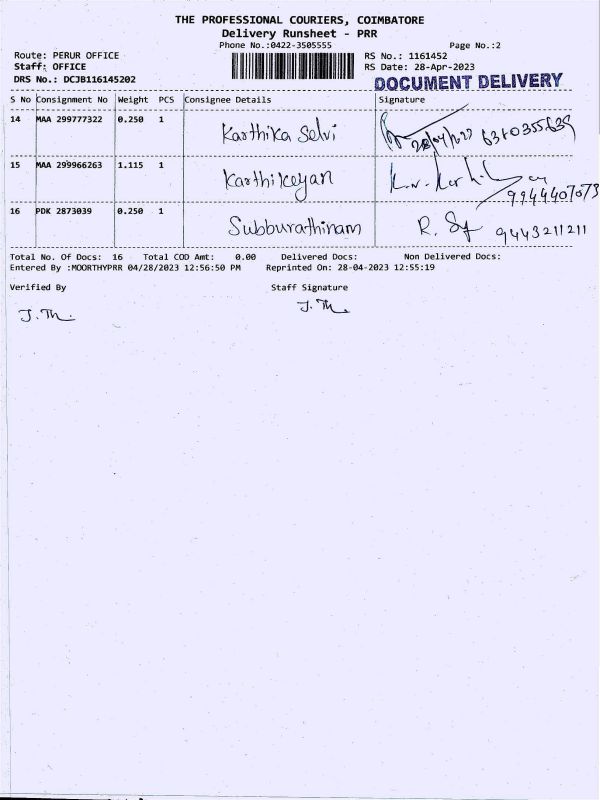 THE PROFESSIONAL COURIERS, COIMBATORE
Delivery Runsheet - PRR
Phone No.:0422-3505555 Page No.:2
Route: PERUR OFFICE RS No.: 1161452
Staff: OFFICE RS Date: 28-Apr-2023
DRS No.: DCJB116145202 DOCUMENT DELIVERY
S No Consignment No Weight PCS Consignee Details Signature
14 MAA 299777322 0.250 1 Karthika Selvi 6380355639
15 MAA 299966263 1.115 1 Karthikeyan
9944407073
16 PDK 2873039 0.250 1 Subburathinam R. 9443211211
Total No. Of Docs: 16 Total COD Amt: 0.00 Delivered Docs: Non Delivered Docs:
Entered By :MOORTHYPRR 04/28/2023 12:56:50 PM Reprinted On: 28-04-2023 12:55:19
Verified By Staff Signature